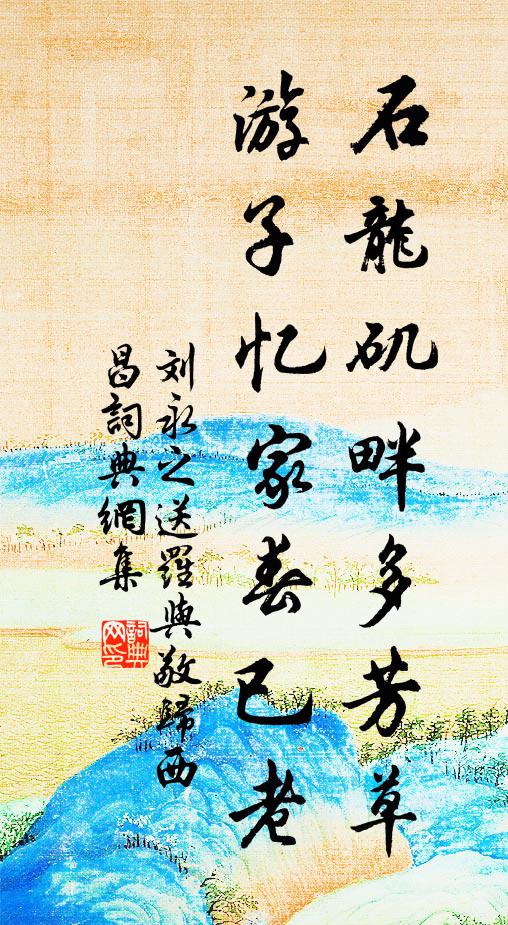 石龍矶畔多芳草
游子忆家春已老
刘永之送羅與敬歸西
昌詞典網集
詞典
网印